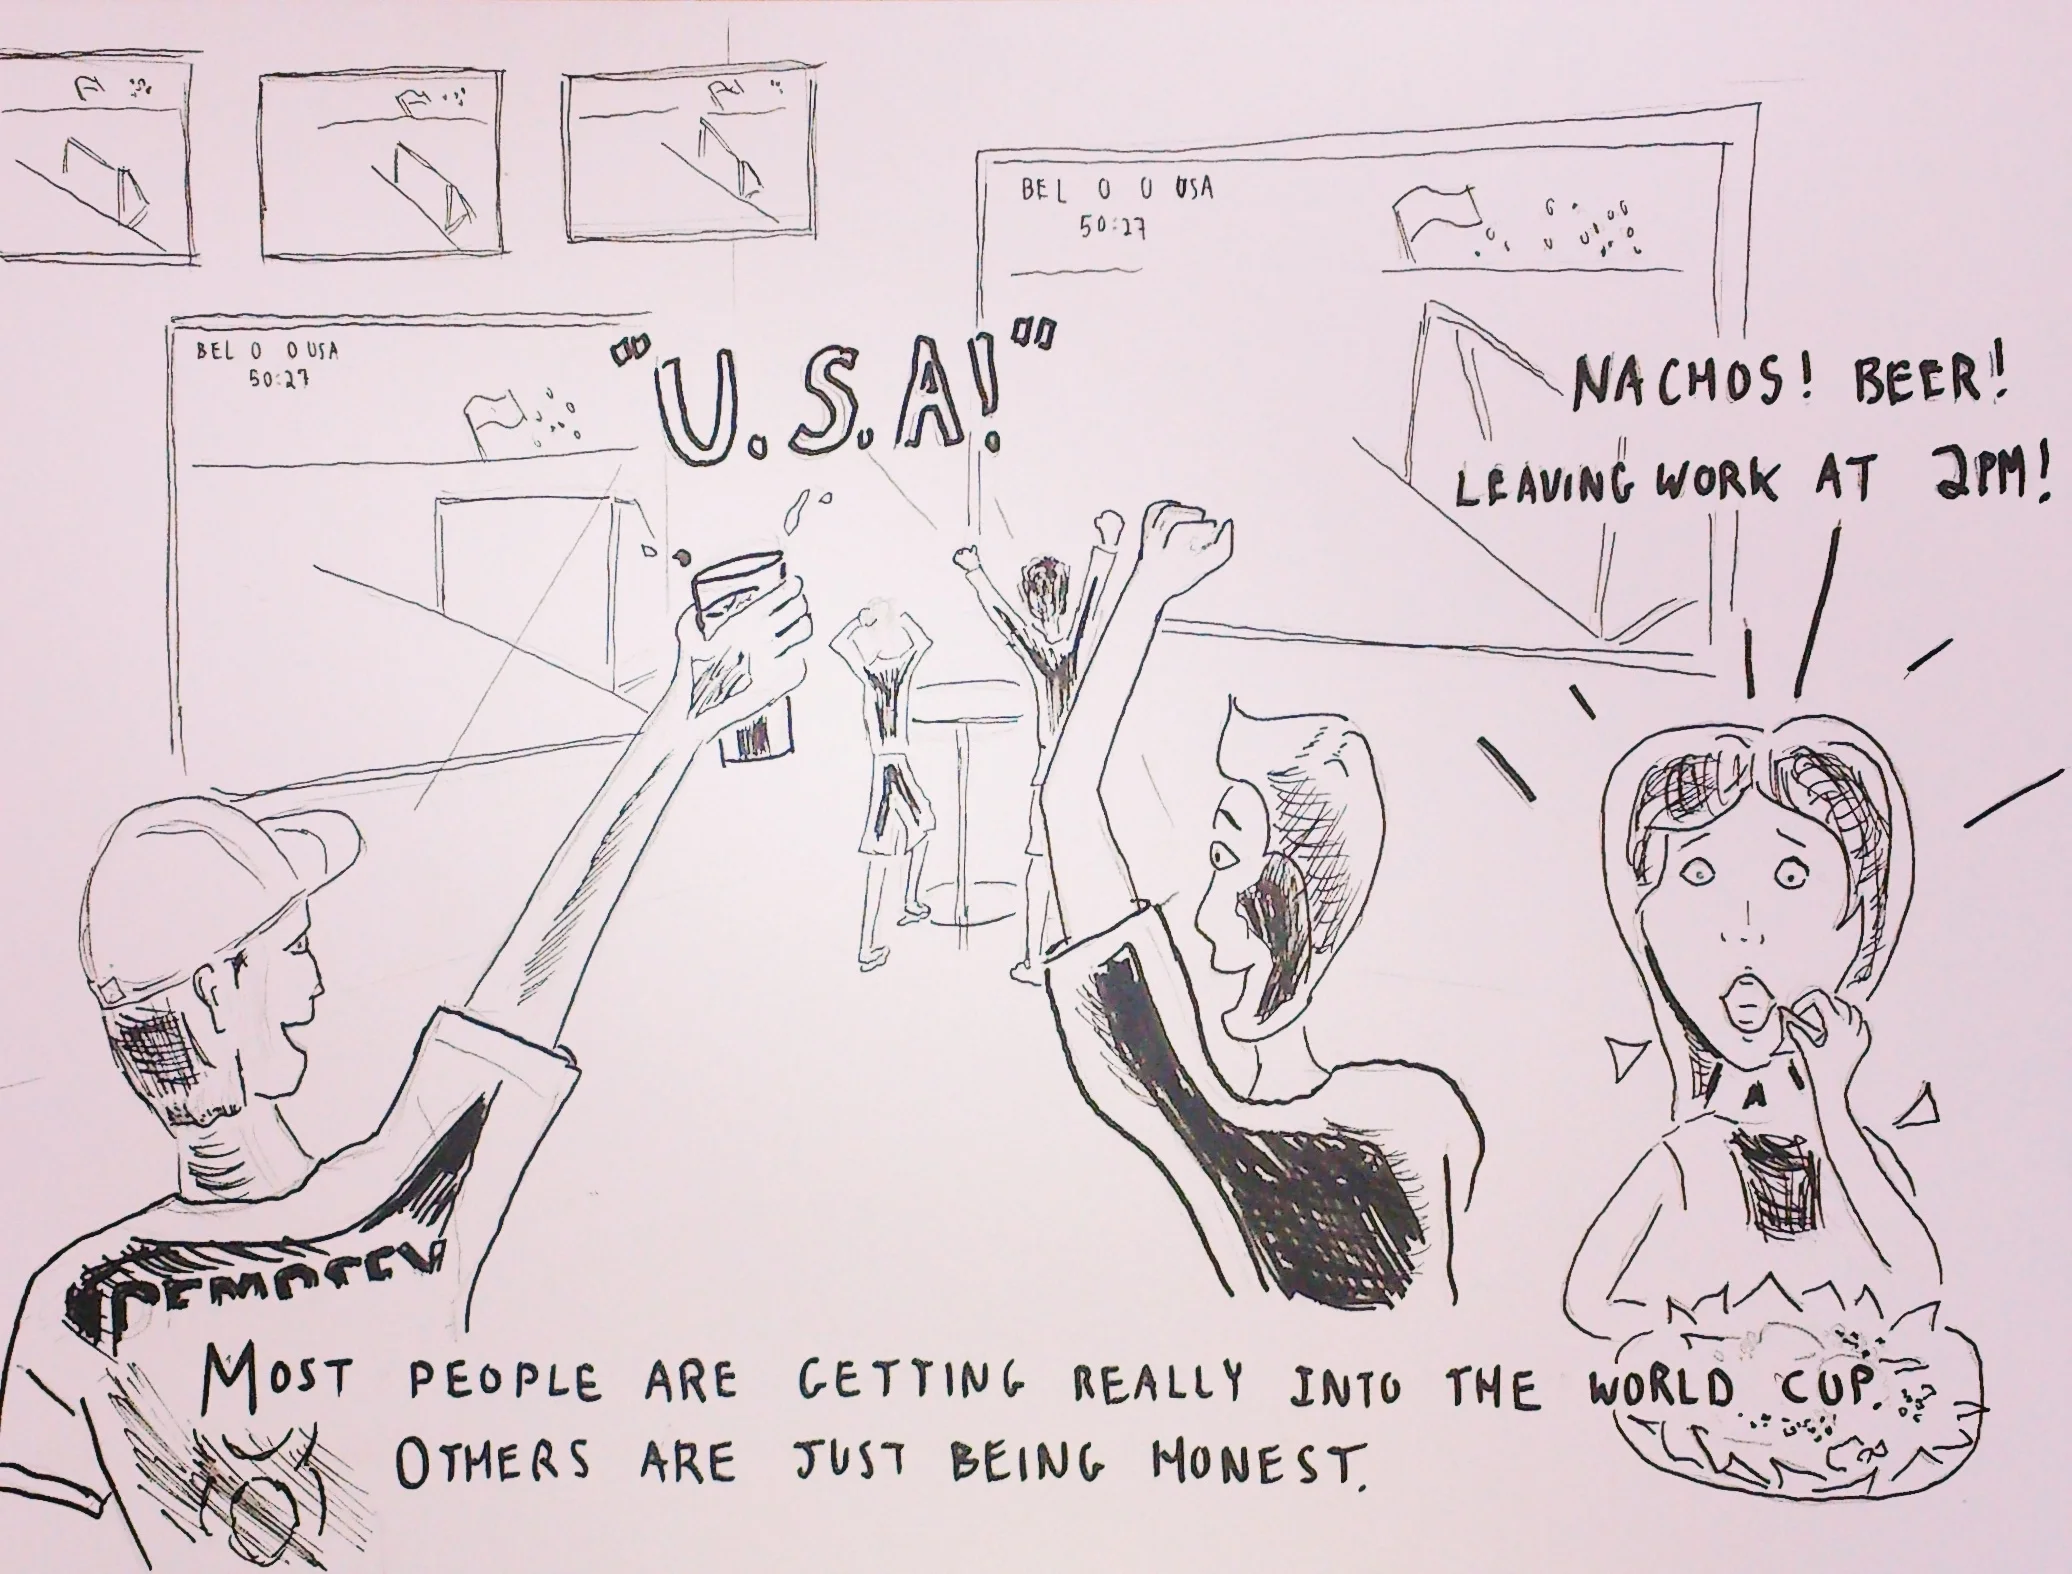 BEL 0 0 USA
50:27
BEL 0 0 USA
50:27
"U.S.A!"
NACHOS! BEER!
LEAVING WORK AT 2PM!
DEMPSEY
MOST PEOPLE ARE GETTING REALLY INTO THE WORLD CUP.
OTHERS ARE JUST BEING HONEST.